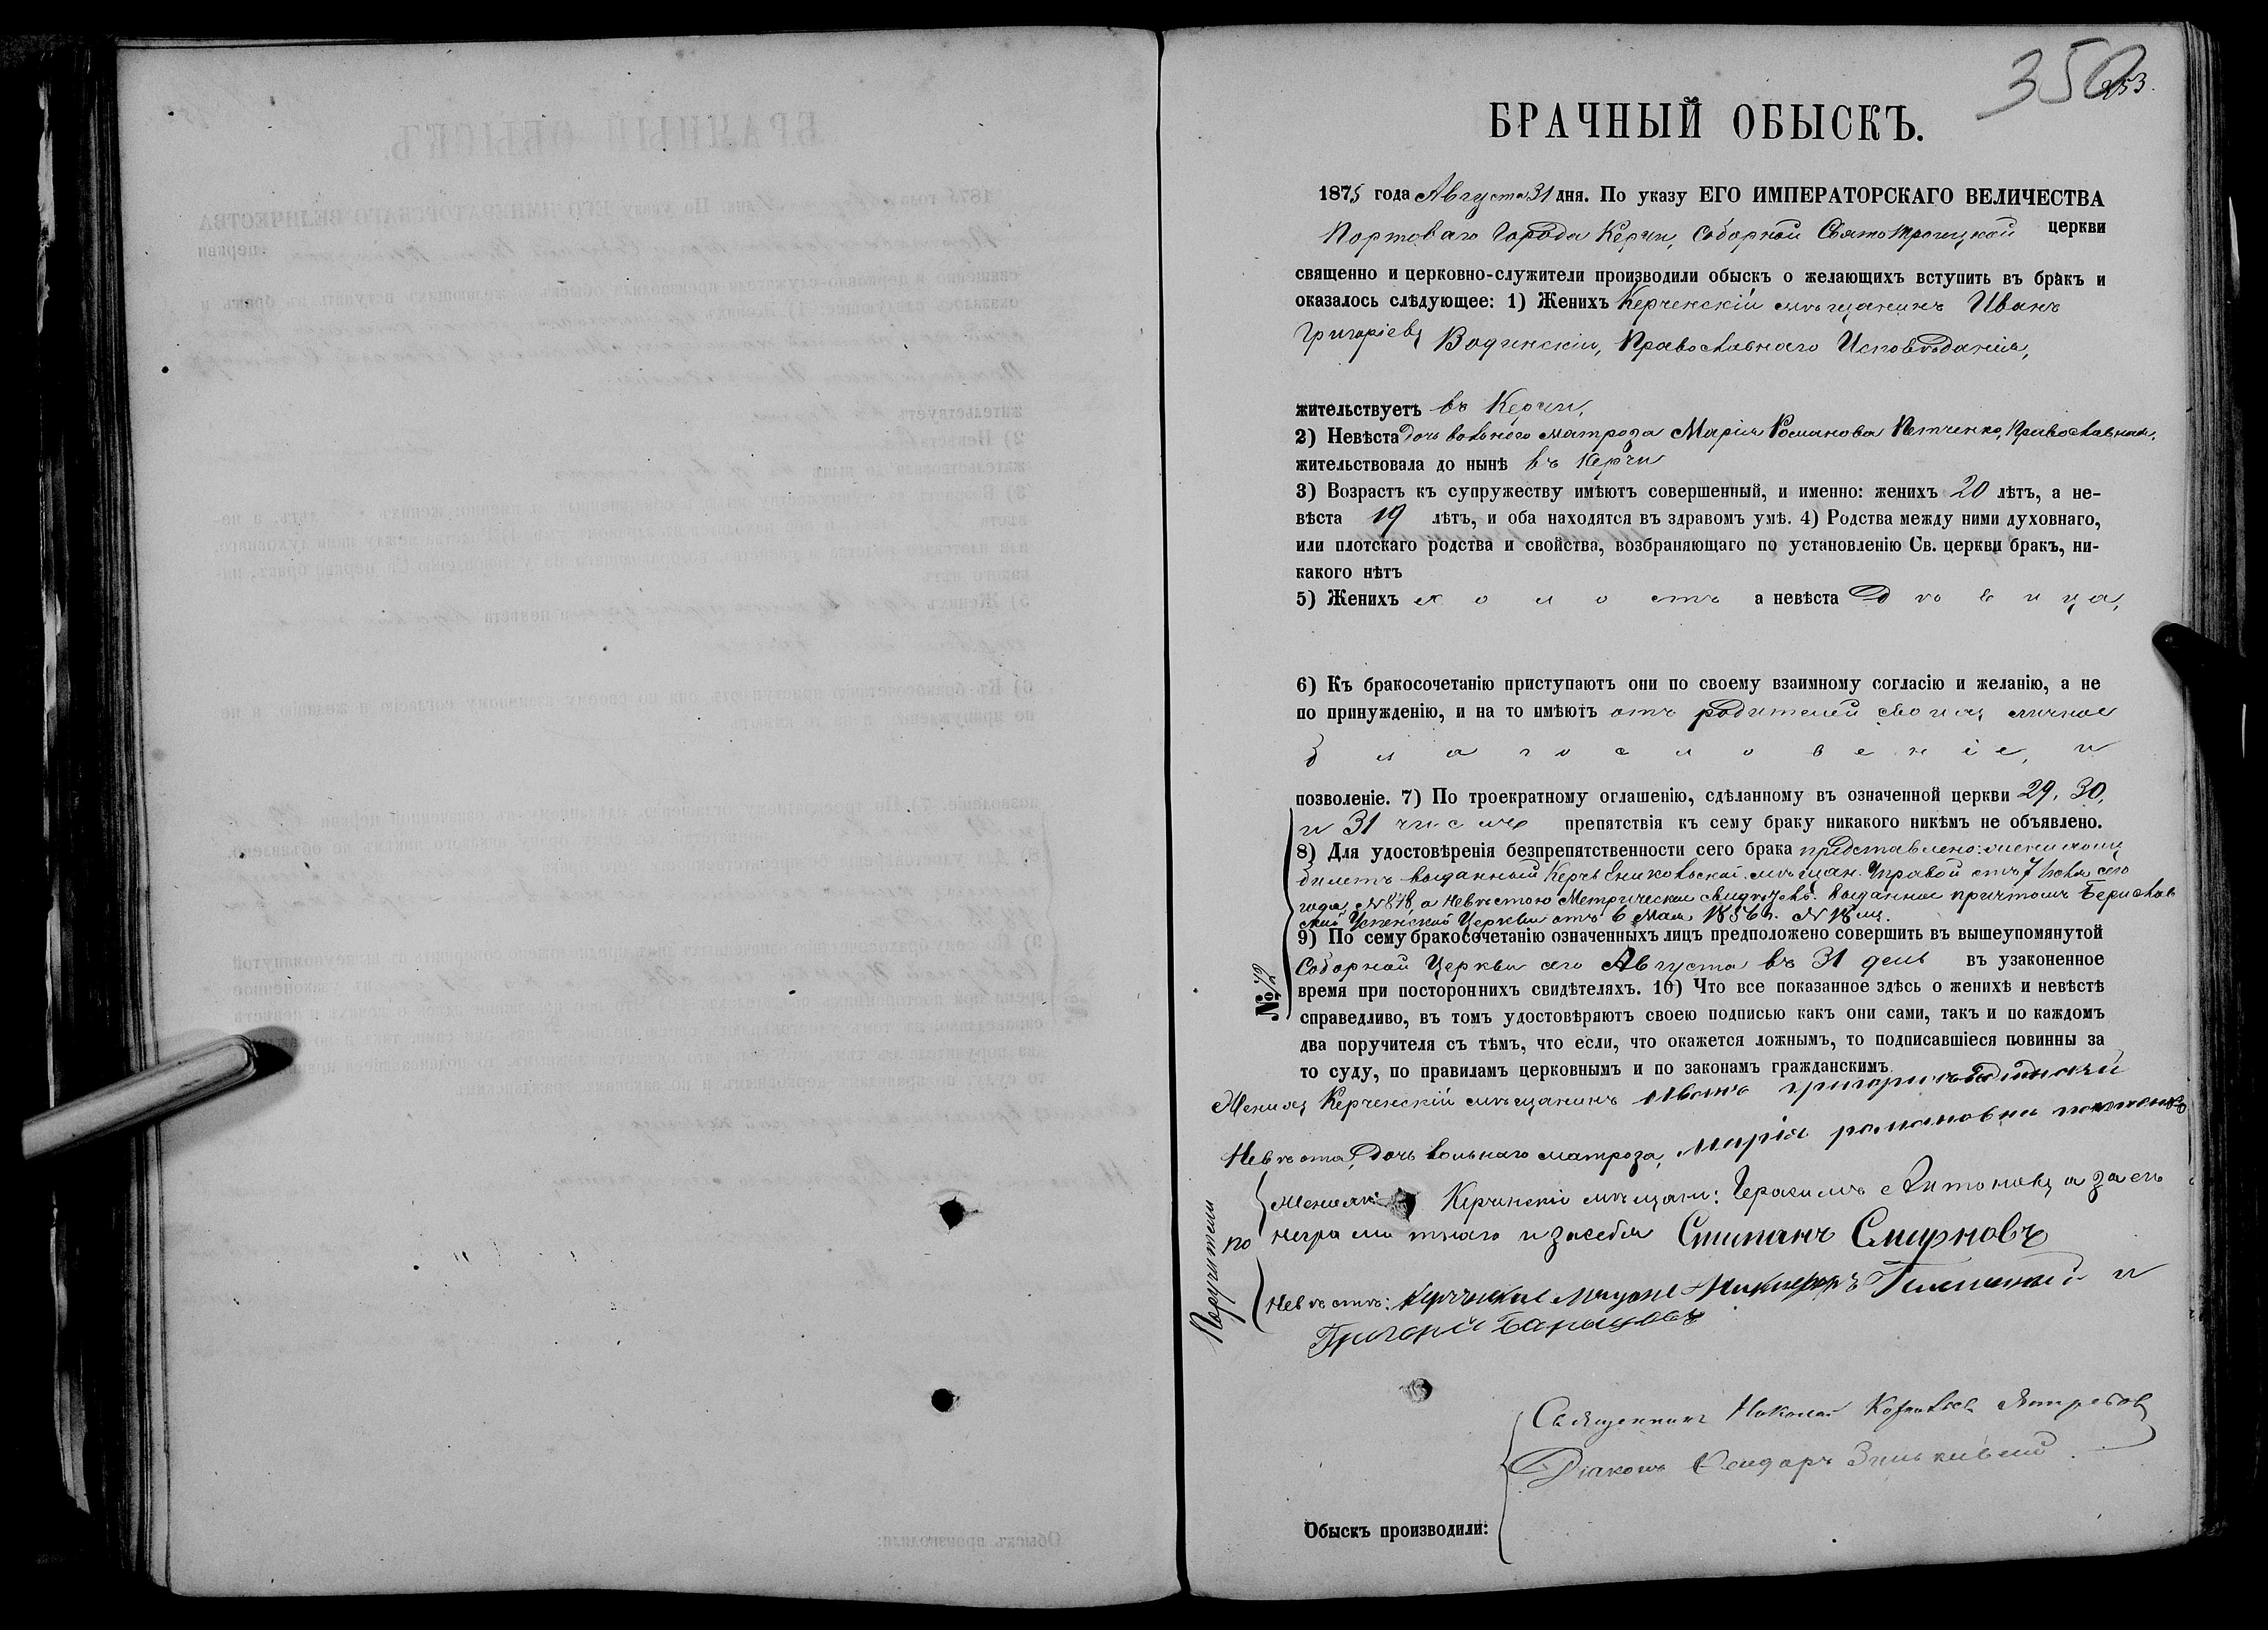 350
253.
БРАЧНЫЙ ОБЫСКЪ.
1875 года Августа 31 дня. По указу ЕГО ИМПЕРАТОРСКАГО ВЕЛИЧЕСТВА
Портоваго Города Керчи, Соборной Свято Троицкой церкви
священно и церковно-служители производили обыскъ о желающихъ вступить въ бракъ и
оказалось слѣдующее: 1) Женихъ Керченскій мѣщанинъ Иванъ
Григоріевъ Водинскій, Православнаго Исповѣданія,
жительствуетъ въ Керчи,
2) Невѣста Дочь вольнаго матроза Марія Романова Петченко, Православная,
жительствовала до нынѣ въ Керчи
3) Возрастъ къ супружеству имѣютъ совершенный, и именно: женихъ 20 лѣтъ, а не-
вѣста 19 лѣтъ, и оба находятся въ здравомъ умѣ. 4) Родства между ними духовнаго,
или плотскаго родства и свойства, возбраняющаго по установленію Св. церкви бракъ, ни-
какого нѣтъ
5) Женихъ холостъ а невѣста Дѣвица,
6) Къ бракосочетанію приступаютъ они по своему взаимному согласію и желанію, а не
по принужденію, и на то имѣютъ отъ родителей своихъ личное
благословеніе, и
позволеніе. 7) По троекратному оглашенію, сдѣланному въ означенной церкви 29, 30,
и 31 числе препятствія къ сему браку никакого никѣмъ не объявлено.
8) Для удостовѣренія безпрепятственности сего брака представлено: женихомъ
билетъ выданный Керчь Ениковьской мѣщан. Управой отъ 7 Іюля сего
года № 878, а Невѣстою Метрическое свидѣт. выданное причтомъ Бериславской
Успенской Церкви отъ 6 Мая 1856 г. № 18
9) По сему бракосочетанію означенныхъ лицъ предположено совершить въ вышеупомянутой
Соборной Церкви сего Августа въ 31 день въ узаконенное
№ 72
время при постороннихъ свидѣтеляхъ. 10) Что все показанное здѣсь о женихѣ и невѣстѣ
справедливо, въ томъ удостовѣряютъ своею подписью какъ они сами, такъ и по каждомъ
два поручителя съ тѣмъ, что если, что окажется ложнымъ, то подписавшіеся повинны за
то суду, по правиламъ церковнымъ и по законамъ гражданскимъ
Женихъ Керченскій мѣщанинъ Иванъ григоричъ
Невѣста, Дочь вольнаго матроза, Марія романовна петченко
Поручители по
Женихѣ: Керченскіе мѣщани: Герасимъ Антоновъ, а за его
неграмотнаго и засебя Стипанъ Смирновъ
Невѣстѣ: Никифоръ и
Григорій
Священникъ Николай Ястребовъ
Діаконъ
Обыскъ производили: